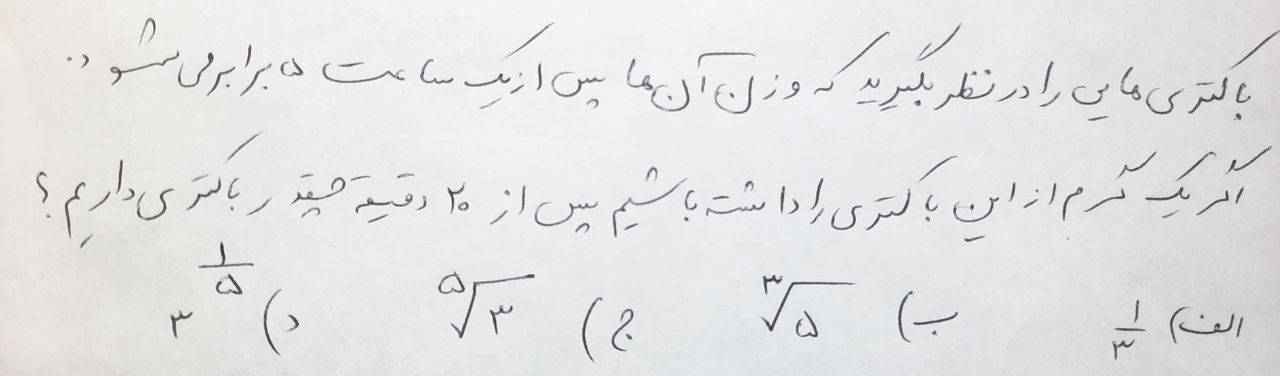 باکتری هایی را در نظر بگیرید که وزن آن ها پس از یک ساعت ۵ برابر می شود.
اگر یک گرم از این باکتری را داشته باشیم پس از ۲۰ دقیقه چقدر باکتری داریم؟
الف) ۱/۳ ب) ∛۵ ج) ⁵√۳ د) ۳^(۱/۵)